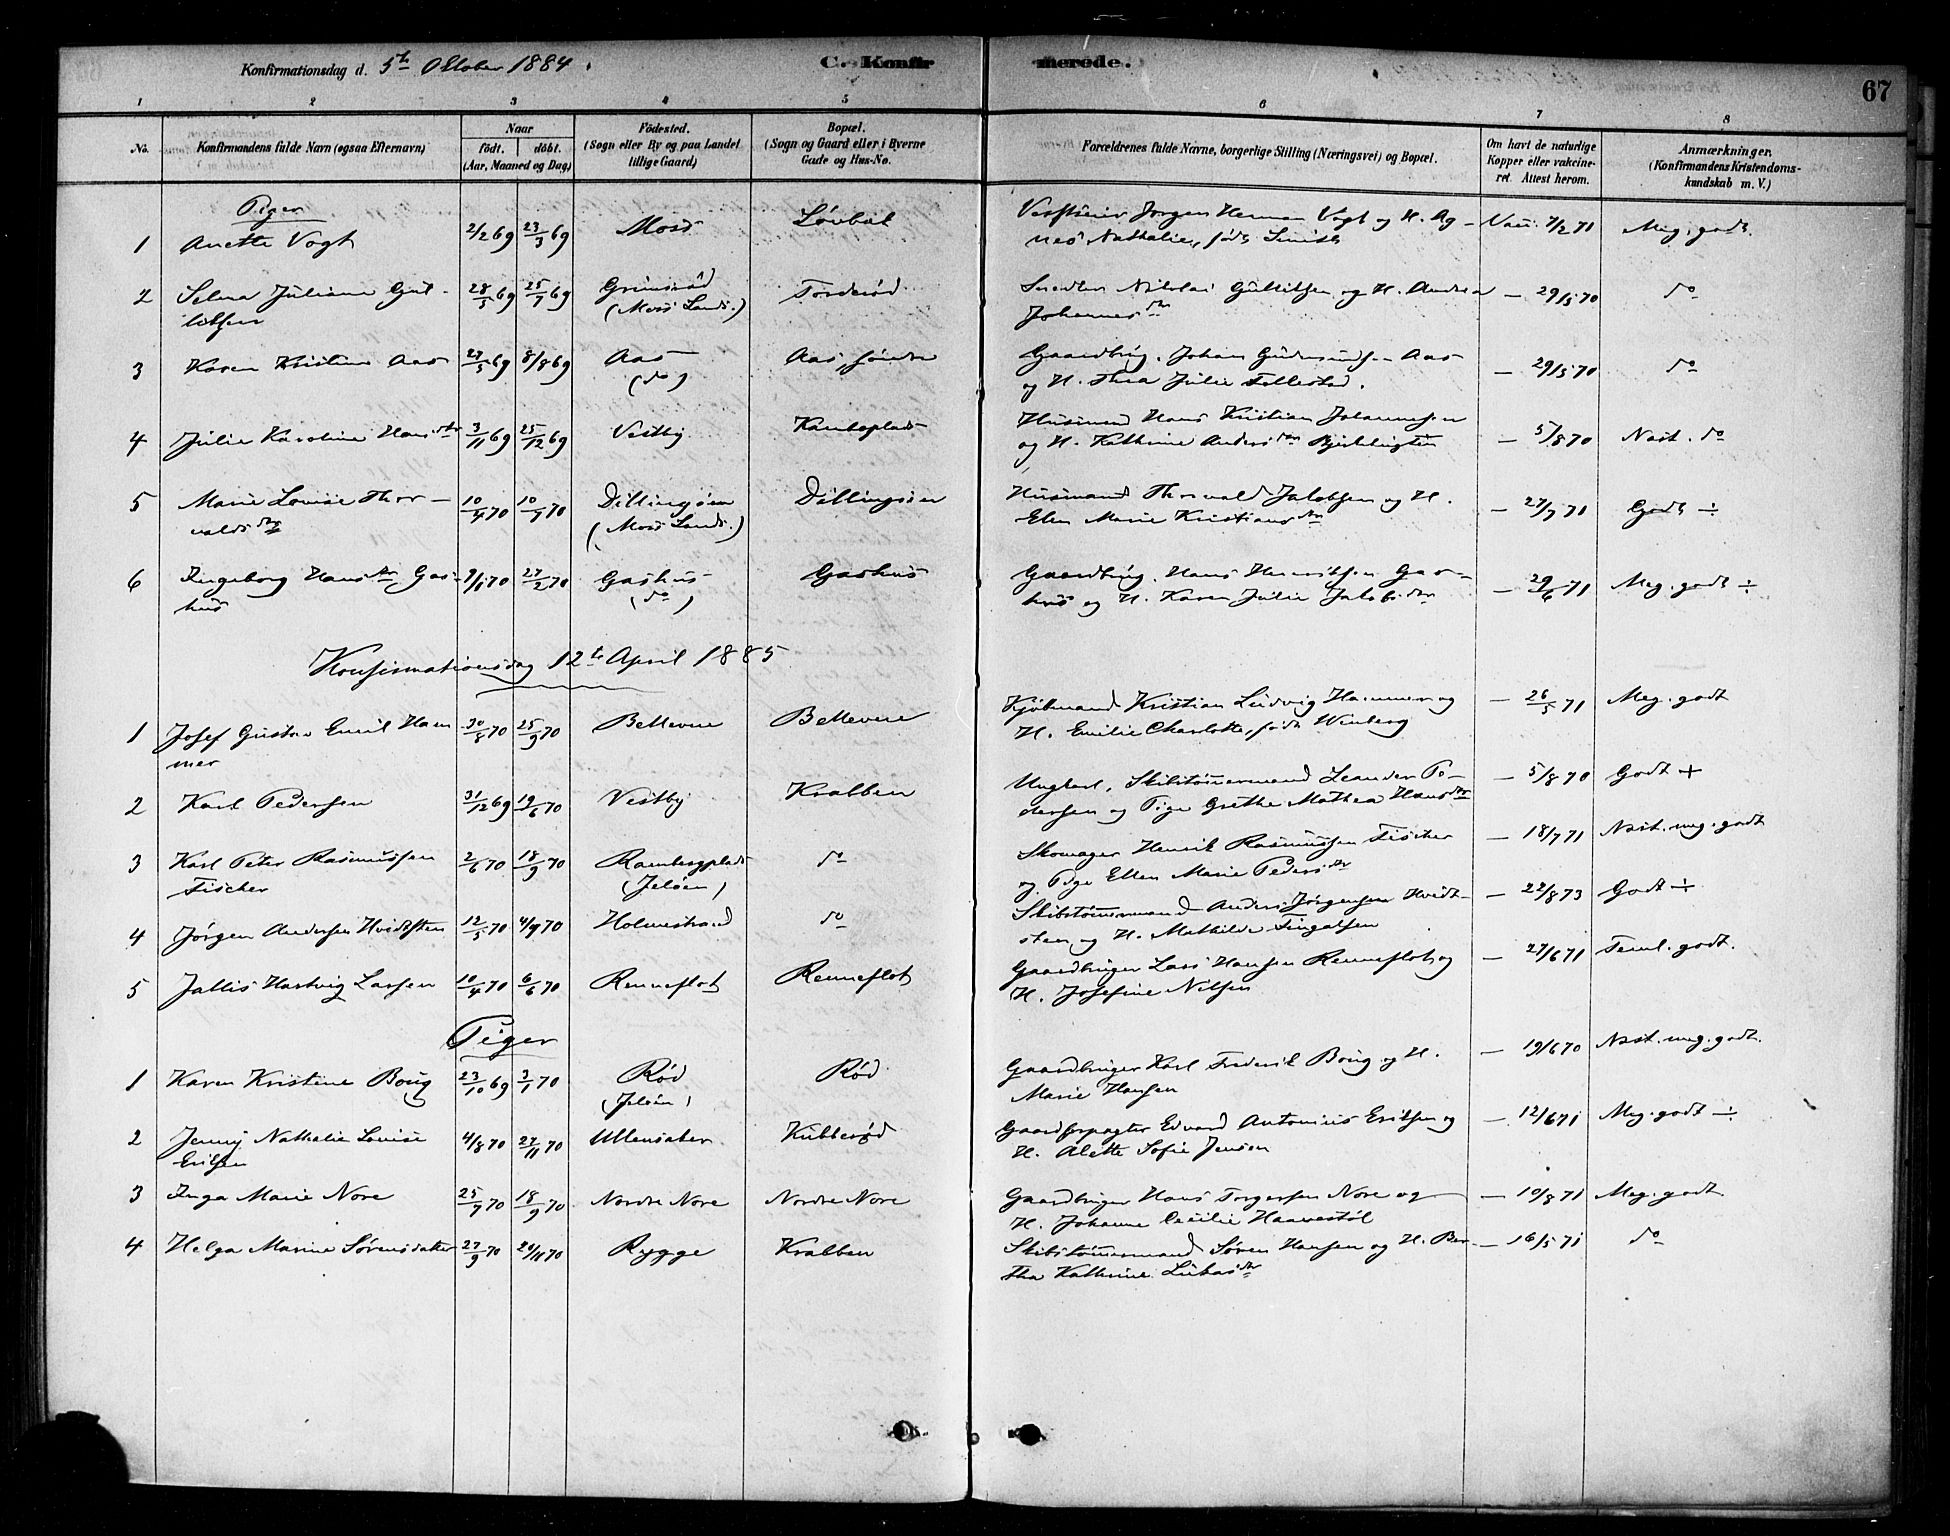 Konfirmationsdag d. 5te Oktober 1884.
C. Konfir merede. 67
1 2 3 4 5 6 7 8
No. Konfirmandens fulde Navn (ogsaa Efternavn) Naar födt. döbt. (Aar, Maaned og Dag) Födested. (Sogn eller By og paa Landet tillige Gaard) Bopæl. (Sogn og Gaard eller i Byerne Gade og Hus-No. Forældrenes fulde Navne, borgerlige Stilling (Næringsvei) og Bopæl. Om havt de naturlige Kopper eller vakcineret. Attest herom. Anmærkninger, (Konfirmandens Kristendomskundskab m. V.)
Piger
1 Anette Vogt 2/2 69 23/3 69 Moss Jørgen Herman Vogt og H. Ag-
nes Nathalie, født Smith 7/2 71 Meg. godt.
2 Selma Juliane Gul- 28/5 69 25/7 69 Grimsrød Torderød Nikolai Gullitsen og H. Andrea — 29/5 70 do
litsen (Moss Lands.) Johannesdtr
3 Karen Kristine Aas 8/8 69 Aas Aas, søndre Gaardbrug. Johan Aas — 29/5 70 do
(do) og H. Thea Julie
4 Julie Karoline Hansdtr 3/11 69 25/12 69 Vestby Husmand Hans Kristian Johannesen
og H. Kathrine Andersdtr — 5/8 70 Næst. do
5 Marie Lovise Thor- 10/4 70 10/7 70 Dillingøen Dillingøen Husmand Thorvald Jakobsen og H. — 27/7 71 Godt ÷
valdsdtr (Moss Lands.) Elen Marie Kristiansdtr
6 Ingeborg Hansdtr Gas- 9/1 70 27/2 70 Gashus Gashus Gaardbrug. Hans Henriksen Gas- — 29/6 71 Meg. godt ÷
hus (do) hus og H. Karen Julie Jakobsdtr
Konfirmationsdag 12te April 1885
1 Josef Gustav Emil Ham 30/8 70 25/9 70 Bellevue Bellevue Kjøbmand Kristian Ludvig Hammer og — 26/5 71 Meg. godt
mer H. Emilie Charlotte, født Winberg
2 Karl Pedersen 31/12 69 19/6 70 Vestby Krabben Ungkarl, Skibstømmermand Leander Pe- — 5/8 70 Godt +
dersen og Pige Grethe Mathea Hansdtr
3 Karl Peter Rasmussen 2/6 70 18/9 70 Rambergplads do Skomager Henrik Rasmussen Fischer — 18/7 71 Næst. meg. godt
Fischer (Jeløen) og Pige Ellen Marie Pedersdtr
4 Jørgen Andersen Hvidsten 12/5 70 4/9 70 Holmestrand do Skibstømmermand Anders Jørgensen Hvidt- — 22/8 73 Godt ÷
sten og H. Mathilde Fingalsen
5 Jallis Hartvig Larsen 10/4 70 6/6 70 Renneflot Renneflot Gaardbruger Lars Hansen Renneflot og — 27/6 71 Teml. godt.
H. Josefine Nilsen
Piger
1 Karen Kristine Boug 23/10 69 3/1 70 Rød Rød Gaardbruger Karl Frederik Boug og H. — 19/6 70 Næst. meg. godt.
(Jeløen) Marie Hansen
2 Jenny Nathalie Lovise 4/8 70 27/11 70 Ullensaker Kubberød Gaardforpagter Edvard Antonius Eriksen og — 12/6 71 Meg. godt ÷
Eriksen H. Alette Sofie Jensen
3 Inga Marie Nore 25/7 70 18/9 70 Nordre Nore Nordre Nore Gaardbruger Hans Torgersen Nore og — 10/8 71 Meg. godt
H. Johanne Cecilie Haavestøl
4 Helga Marine Sørensdatter 27/9 70 20/11 70 Rygge Krabben Skibstømmermand Søren Hansen og H. Ber- — 16/5 71 do
tha Kathrine Lukasdtr